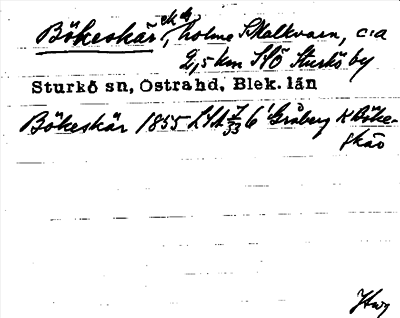 Bökeskär, holme S Malkvarn, c:a
2,5 km SSÖ Sturkö by
Sturkö sn, Östra hd, Blek. län
Bökeskär 1855 LSA 6 Gråberg